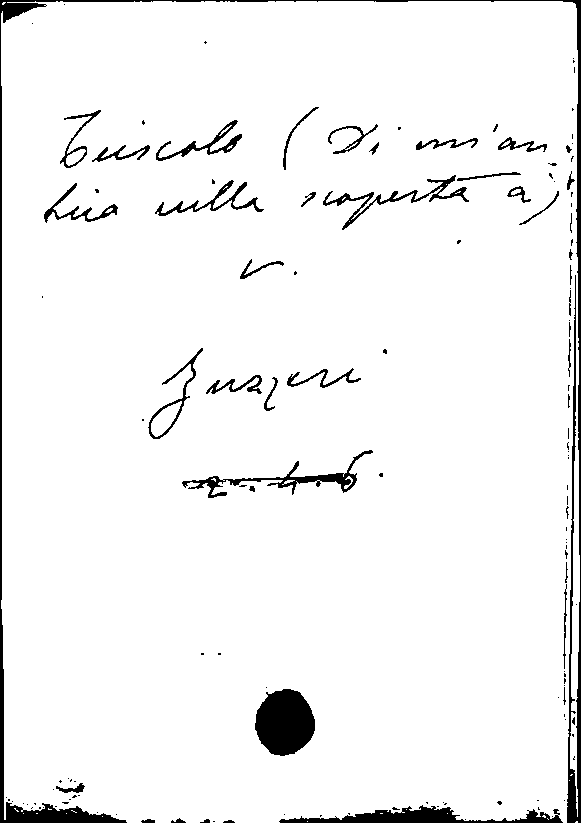 Tuscolo ( Di un'an.
tica villa scoperta a)
v.
Zuzzeri
2.4.6.